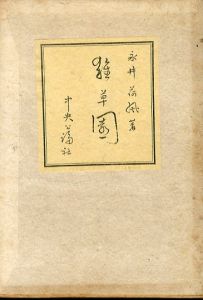 永井荷風著
雑草園
中央公論社